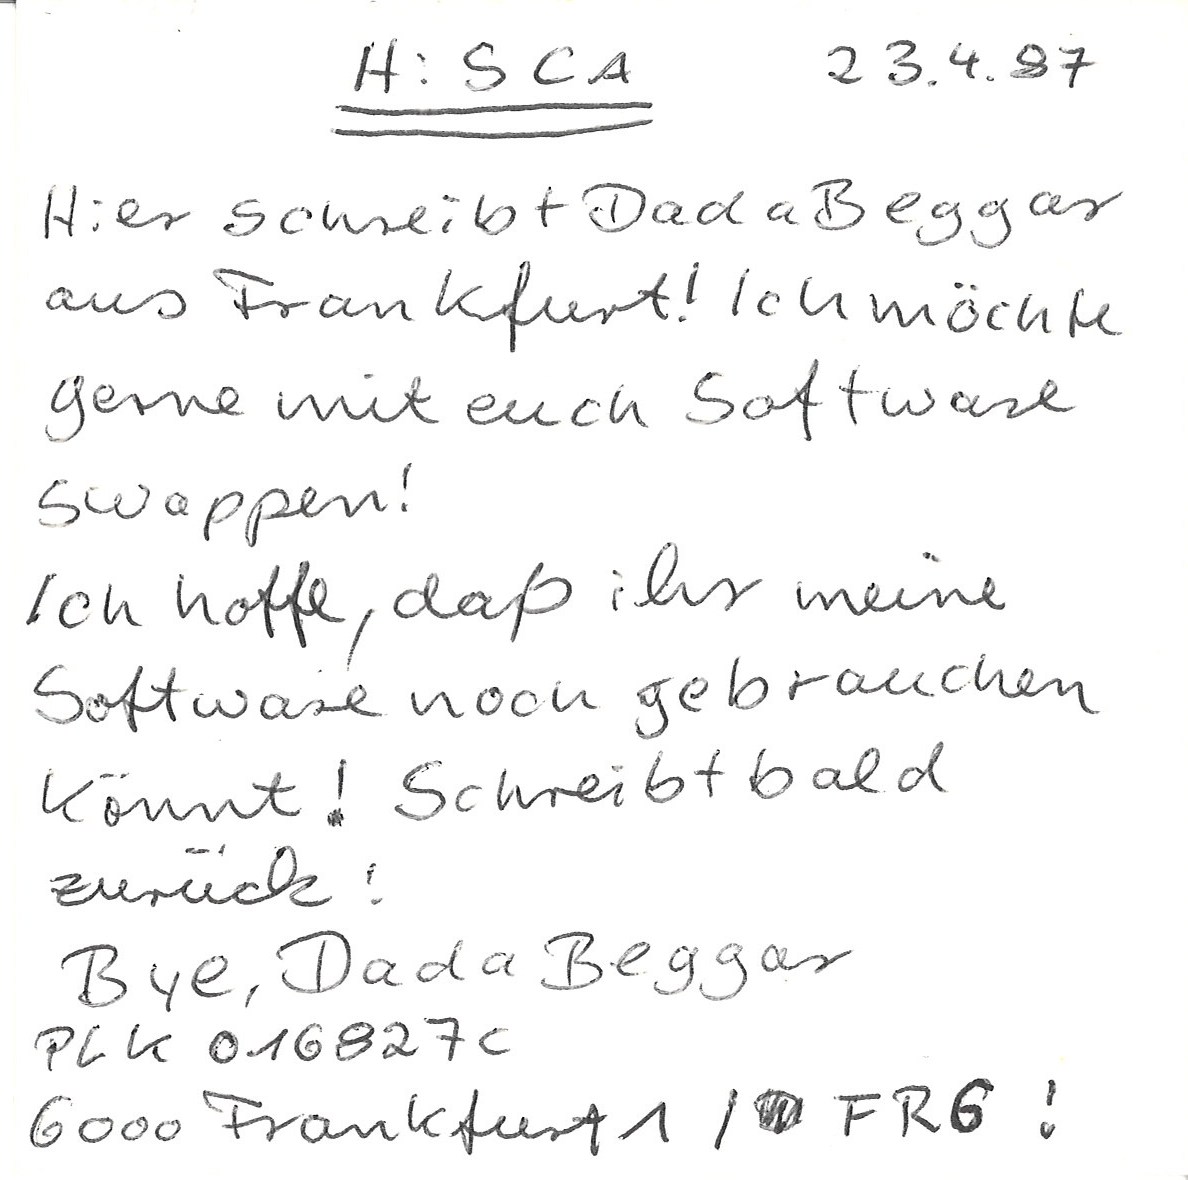 H: SCA 23.4.87
Hier schreibt Dada Beggar
aus Frankfurt! Ich möchte
gerne mit euch Software
swappen!
Ich hoffe, daß ihr meine
Software noch gebrauchen
könnt! Schreibt bald
zurück!
Bye, Dada Beggar
PLK 016827c
6000 Frankfurt 1 / FRG !